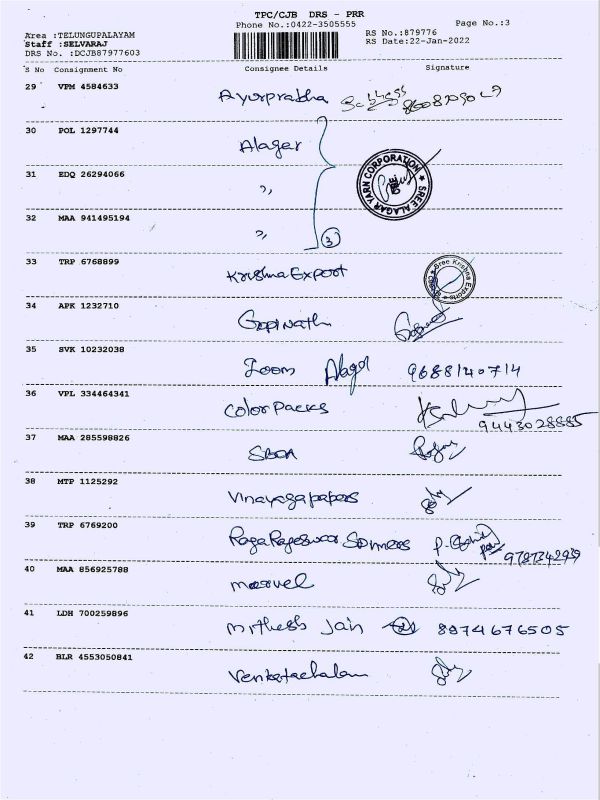 TPC/CJB DRS - PRR
Phone No.:0422-3505555
Page No.:3
Area :TELUNGUPALAYAM
Staff :SELVARAJ
DRS No. :DCJB87977603
RS No.:879776
RS Date:22-Jan-2022
S No Consignment No Consignee Details Signature
29 VPM 4584633 Ayurprabha
30 POL 1297744 Alager
31 EDQ 26294066 "
32 MAA 941495194 " 3
SREE ALAGAR YARN CORPORATION
33 TRP 6768899 Krishna Export
Sree Krishna Exports
34 APK 1232710 Gopinath
35 SVK 10232038 Zoom Alagu 9688140714
36 VPL 334464341 Color Packs
9443028885
37 MAA 285598826 SBOA
38 MTP 1125292 Vinayaga papers
39 TRP 6769200 RagaRageswar Spinners
9787342939
40 MAA 856925788 marvel
41 LDH 700259896 mithesh Jain 8974676505
42 BLR 4553050841 Venkatachalam